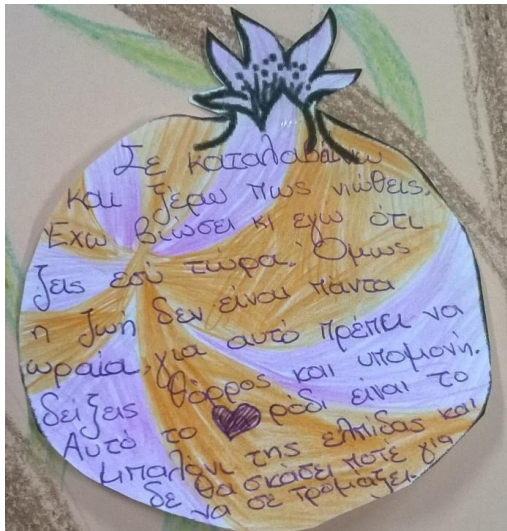 Σε καταλαβαίνω
και ξέρω πως νιώθεις.
Έχω βιώσει κι εγώ ότι
ζεις εσύ τώρα. Όμως
η ζωή δεν είναι πάντα
ωραία, για αυτό πρέπει να
δείξεις θάρρος και υπομονή.
Αυτό το ♥ ρόδι είναι το
μπαλόνι της ελπίδας και
δε θα σκάσει ποτέ για
να σε τρομάξει.